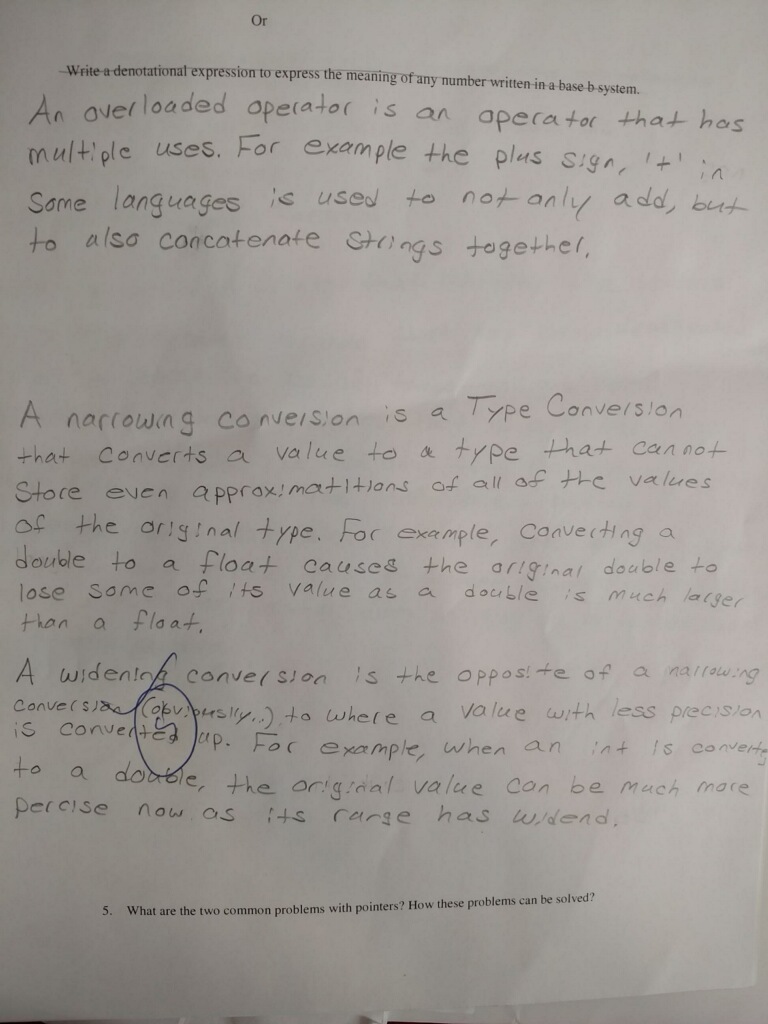 Or
Write a denotational expression to express the meaning of any number written in a base b system.
An overloaded operator is an operator that has
multiple uses. For example the plus sign, '+' in
Some languages is used to not only add, but
to also concatenate strings together.
A narrowing conversion is a Type Conversion
that converts a value to a type that cannot
Store even approximatitions of all of the values
of the original type. For example, converting a
double to a float causes the original double to
lose some of its value as a double is much larger
than a float.
A widening conversion is the opposite of a narrowing
conversion (obviously..) to where a value with less precision
is converted up. For example, when an int is converte
to a double, the original value can be much more
percise now as its range has widend.
5. What are the two common problems with pointers? How these problems can be solved?